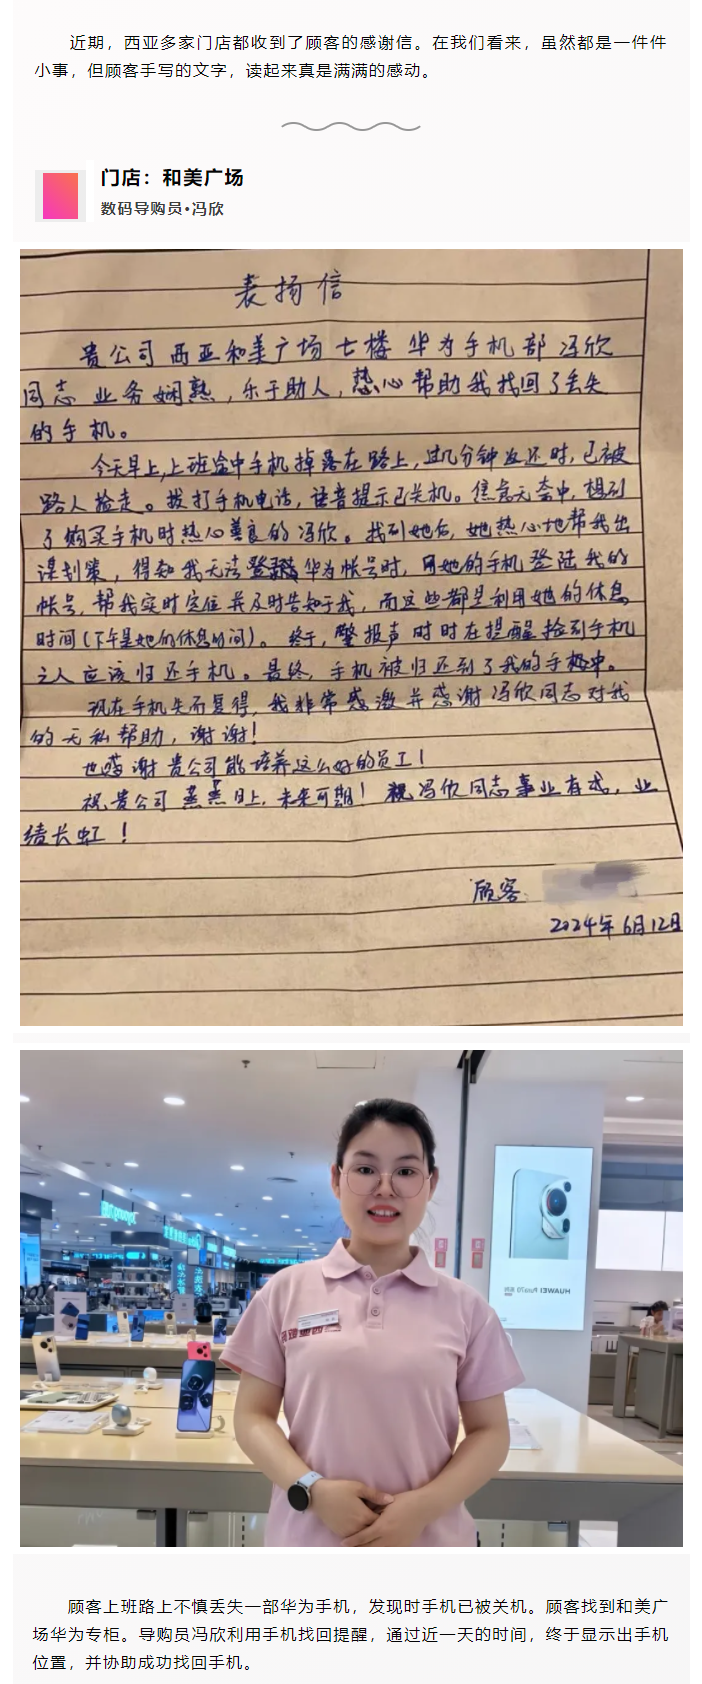 近期，西亚多家门店都收到了顾客的感谢信。在我们看来，虽然都是一件件
小事，但顾客手写的文字，读起来真是满满的感动。
门店：和美广场
数码导购员•冯欣
表扬信
贵公司西亚和美广场七楼华为手机部冯欣
同志业务娴熟，乐于助人，热心帮助我找回了丢失
的手机。
今天早上，上班途中手机掉落在路上，过几分钟返还时，已被
路人捡走。拨打手机电话，语音提示已关机。焦急无奈中，想到
了购买手机时热心善良的冯欣。找到她后，她热心地帮我出
谋划策，得知我无法登录华为帐号时，用她的手机登陆我的
帐号，帮我实时定位并及时告知于我，而这些都是利用她的休息
时间（下午是她的休息时间）。终于，警报声时时在提醒捡到手机
之人应该归还手机。最终，手机被归还到了我的手中。
现在手机失而复得，我非常感激并感谢冯欣同志对我
的无私帮助，谢谢！
也感谢贵公司能培养这么好的员工！
祝贵公司蒸蒸日上，未来可期！祝冯欣同志事业有成，业
绩长虹！
顾客
2024年6月12日
HUAWEI Pura70
顾客上班路上不慎丢失一部华为手机，发现时手机已被关机。顾客找到和美广
场华为专柜。导购员冯欣利用手机找回提醒，通过近一天的时间，终于显示出手机
位置，并协助成功找回手机。